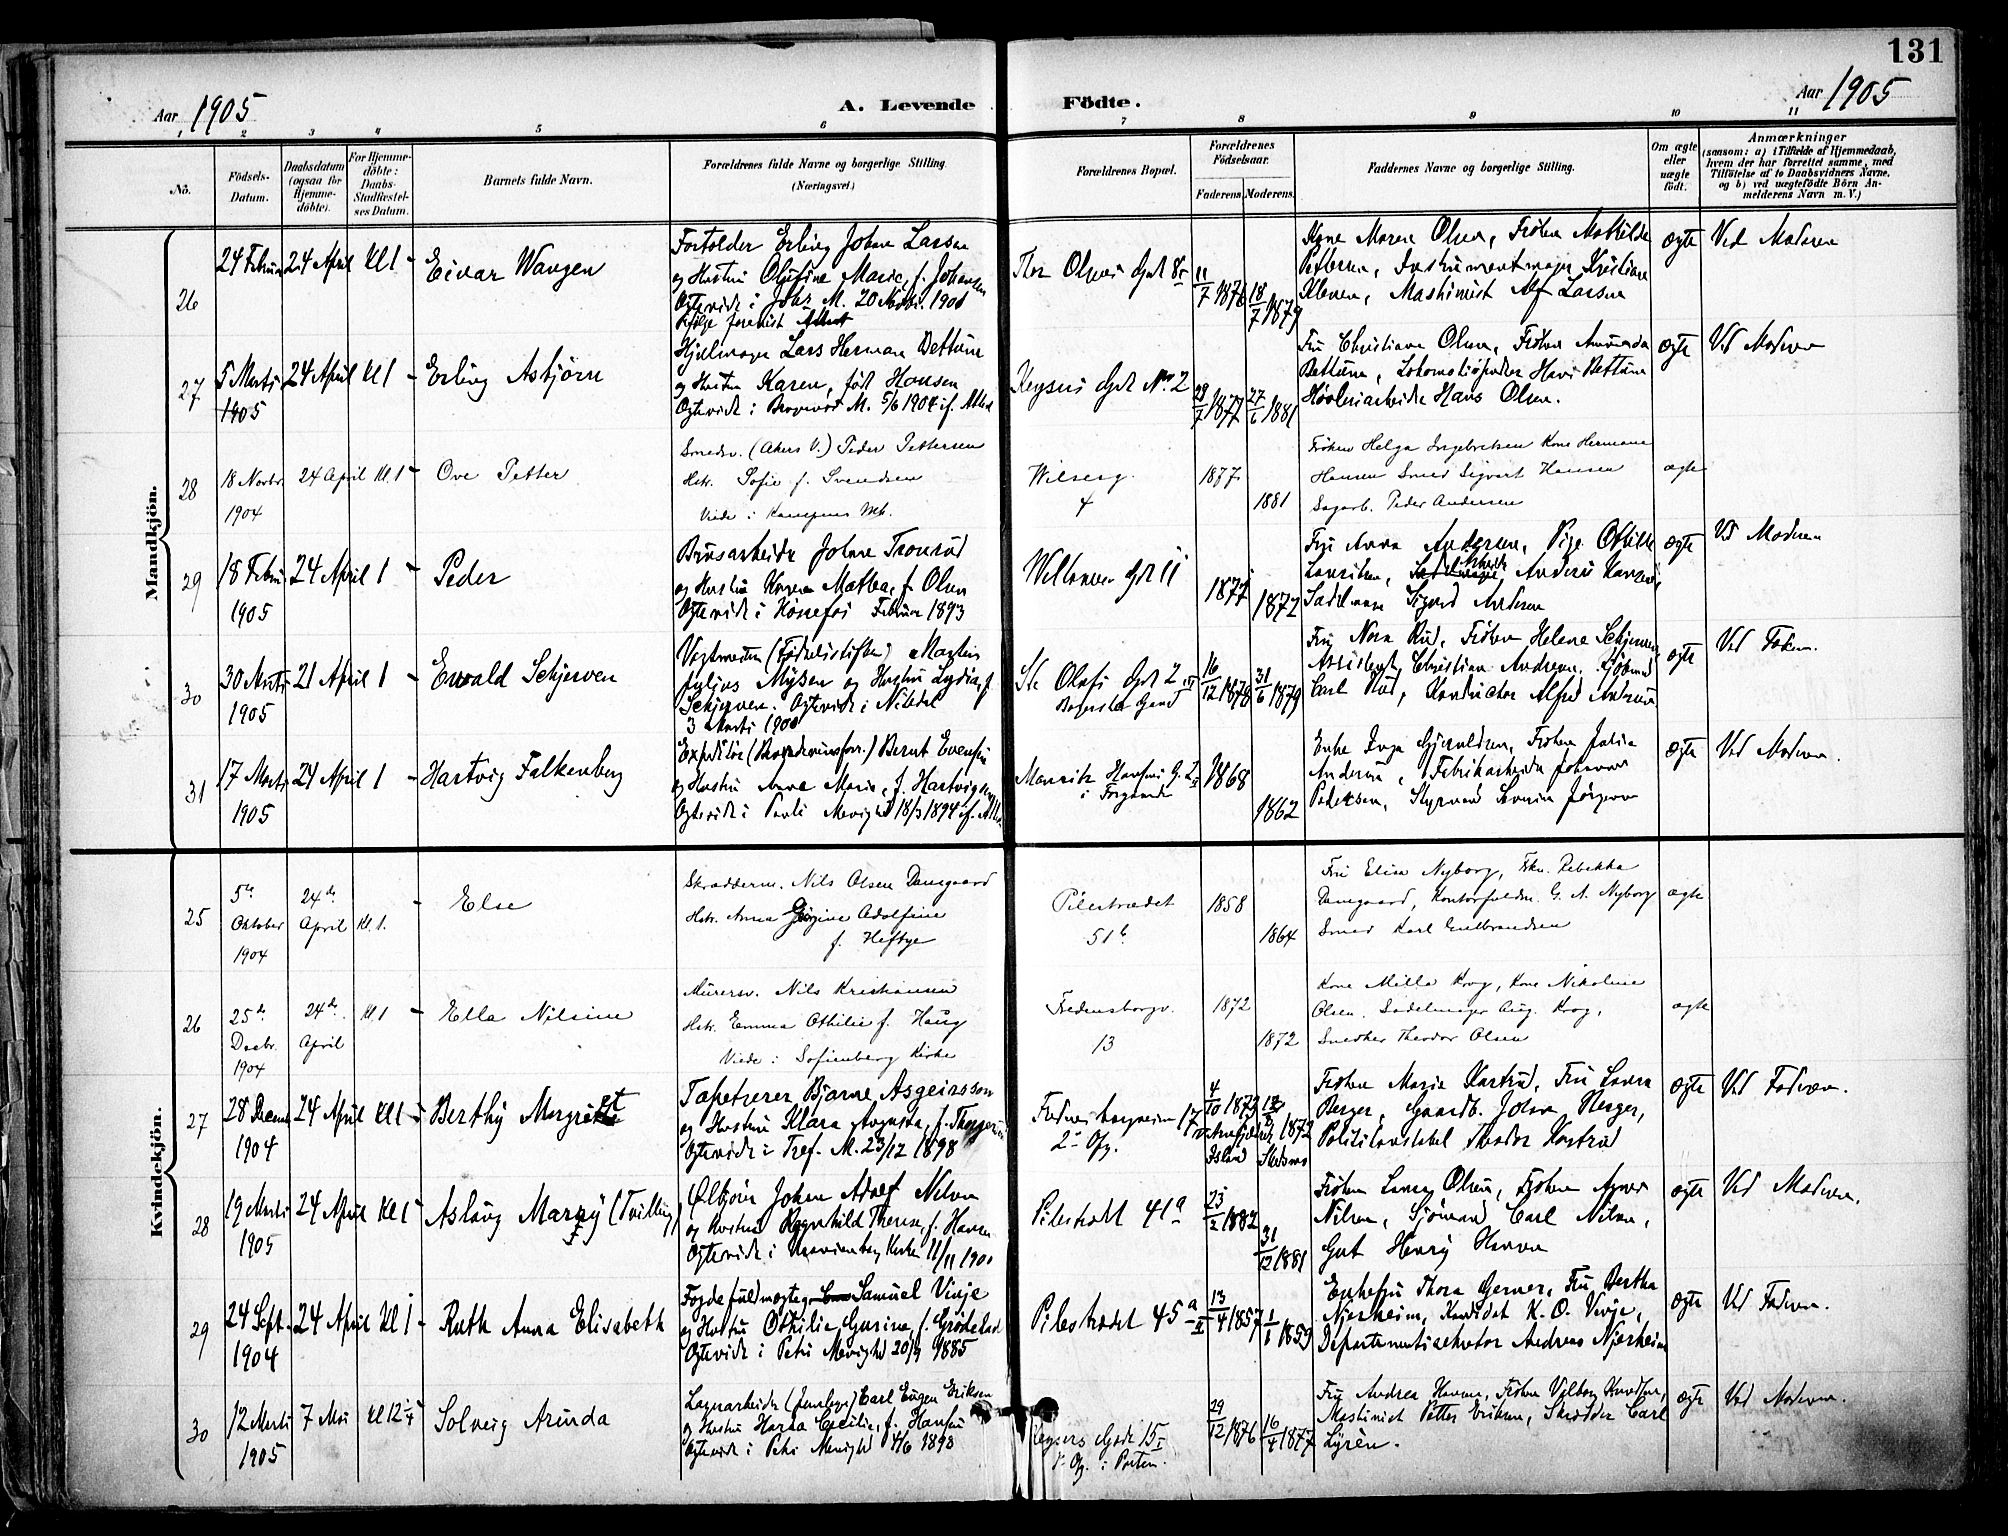 131
Aar 1905
A. Levende Födte.
Aar 1905
1 2 3 4 5 6 7 8 9 10 11
No.
Födsels-Datum.
Daabsdatum (ogsaa for Hjemme-döbte).
For Hjemme-döbte: Daabs-Stadfæstel-ses Datum.
Barnets fulde Navn.
Forældrenes fulde Navne og borgerlige Stilling.
(Næringsvei.)
Forældrenes Bopæl.
Forældrenes Födselsaar.
Faderens.
Moderens.
Faddernes Navne og borgerlige Stilling.
Om ægte eller uægte födt.
Anmærkninger
(saasom: a) i Tilfælde af Hjemmedaab, hvem der har forrettet samme, med Tilföielse af to Daabsvidners Navne, og b) ved uægtefödte Börn An-melderens Navn m. V.)
Mandkjön.
26
24 Febru 24 April Kl 1 - Eivar Wangen
Fortolder Erling Johan Larsen
og Hustru Olufine Marie, f. Johansen
Ægteviede i Johs M. 20 Novbr. 1900
ifølge forevist Attest
Thor Olsens Gade 8
11/7 1876
18/7 1879
Kone Maren Olsen, Frøken Mathilde
Pettersen, Instrumentmager Kristian
Kleven, Maskinist Alf Larsen
ægte
Ved Moderen
27
5 Marts 24 April Kl 1 - Erling Asbjørn
1905
Hjulmager Lars Herman Dettum
og Hustru Karen, født Hansen
Ægteviede i M. 5/6 1904 if. Attest
Keysers Gade No 2
28/7 1877
27/6 1881
Fru Christiane Olsen, Frøken Amanda
Dettum, Lokomotivpudser Dettum
Høvleriarbeider Hans Olsen.
ægte
Ved Moderen
28
18 Novbr. 24 April Kl. 1 - Ove Petter
1904
Smedsv. (Akers V.) Peder Pettersen
Hstr. Sofie f. Svendsen
Viede i Kampens Mk.
Wilsesg.
4
1877
1881
Frøken Helga Ingebretsen Kone Hermane
Hansen Smed Sigvart Hansen
Sagarb. Peder Andersen
ægte
29
18 Febru 24 April 1 - Peder
1905
Brusarbeider Johan Tronrud
og Hustru Karen Mathea, f. Olsen
Ægteviede i Hønefos Februar 1893
Gade 11
1872
Fru Anna Andersen, Pige Othilde
Lauritsen, Anders Hansen,
Sadelmager Sigurd Andersen
ægte
Ved Moderen
30
30 Marts 21 April 1 - Ewald Schjerven
1905
Vagtmester (Fødselsstiften) Martin
Julius Mysen og Hustru Lydia, f.
Schjerven. Ægteviede i Nitedal
3 Marts 1900
St. Olafs Gade 2
16/12 1878
31/6 1879
Fru Nora Rud, Frøken Helene Schjerven,
Assistent Christian Andersen, Sjømand
Carl Rud, Konduktør Alfred Andersen
ægte
Ved Faderen.
31
17 Marts 24 April 1 - Hartvig Falkenberg
1905
Expeditør Bernt Evensen
og Hustru Anne Marie, f. Hartvigsen
Ægteviede i Pauls Menighed 18/3 1894 if. Attest
Mauritz Hansens G. 2
i Forgaarden
1868
1862
Enke Inga Gjeruldsen, Frøken Julie
Andersen, Fabrikarbeider Johannes
Pedersen, Styrmand Severin Jørgensen
ægte
Ved Moderen.
Kvindekjön.
25
5te Oktober 1904
24de April
Kl. 1.
- Else
Skrædderm. Nils Olsen Damgaard
Hstr. Anna Jörgine Adolfine
f. Heftye
Pilestrædet
51b
1858
1864
Fru Elise Nyborg, Frkn. Rebekka
Damgaard, Kontorfuldm. G. A. Nyborg
Smed Karl Gulbrandsen
ægte
26
25de Decbr. 1904
24de April
Kl. 1
- Ella Nilsine
Murersv. Nils Kristiansen
Hstr. Emma Othilie f. Haug
Viede i Sofienberg Kirke
Fredensborgv.
13
1872
1872
Kone Milla Krog, Kone Nikoline
Olsen. Sadelmager Aug. Krog,
Snedker Theodor Olsen
ægte
27
28 Decem 24 April Kl 1 - Berthy Margrethe
1904
Tapetserer Bjarne Asgeirsson
og Hustru Klara Augusta, f. Thorgersen
Ægteviede i Tref. M. 23/12 1898
Fredensborgveien 17
2den Opg.
4/10 1873
Island
1872
Frøken Marie Kastrud, Fru Laura
Berger, Gaardb. Johan Berger,
Politikonstabel Theodor Kastrud
ægte
Ved Faderen.
28
19 Marts 24 April Kl 1 - Aslaug Marry (Tvilling)
1905
Øltjører Johan Adolf Nilsen
og Hustru Ragnhild Therese, f. Hansen
Ægteviede i Kirke 11/11 1900
Pilestrædet 41a
23/2 1882
31/12 1881
Frøken Laura Olsen, Frøken Agnes
Nilsen, Sjømand Carl Nilsen,
Gut Henry Hansen
ægte
Ved Moderen.
29
24 Sept. 24 April Kl 1 - Ruth Anna Elisabeth
1904
Fogdefuldmægtig Samuel Vinje
og Hustru Othilie Gurine, f. Grødeland
Ægteviede i Petri Menighed 20/9 1885
Pilestrædet 45a II
13/4 1857
1/1 1859
Enkefru Thora Gerner, Fru Bertha
Njerheim, Kandidat K. O. Vinje,
Departementssekretær Andreas Njerheim
ægte
Ved Faderen.
30
12 Marts 7 Mai Kl 12 1/4 - Solveig Arunda
1905
Lagerarbeider Carl Eugen Eriksen
og Hustru Hagna Cecilie, f. Hansen
Ægteviede i Petri Menighed 4/6 1898
Keysers Gade 15 I
Opg. i Porten.
29/12 1876
16/4 1877
Fru Andrea Hansen, Frøken Valborg Knudsen,
Maskinist Petter Eriksen, Skrædder Carl
Lyrén.
ægte
Ved Moderen.